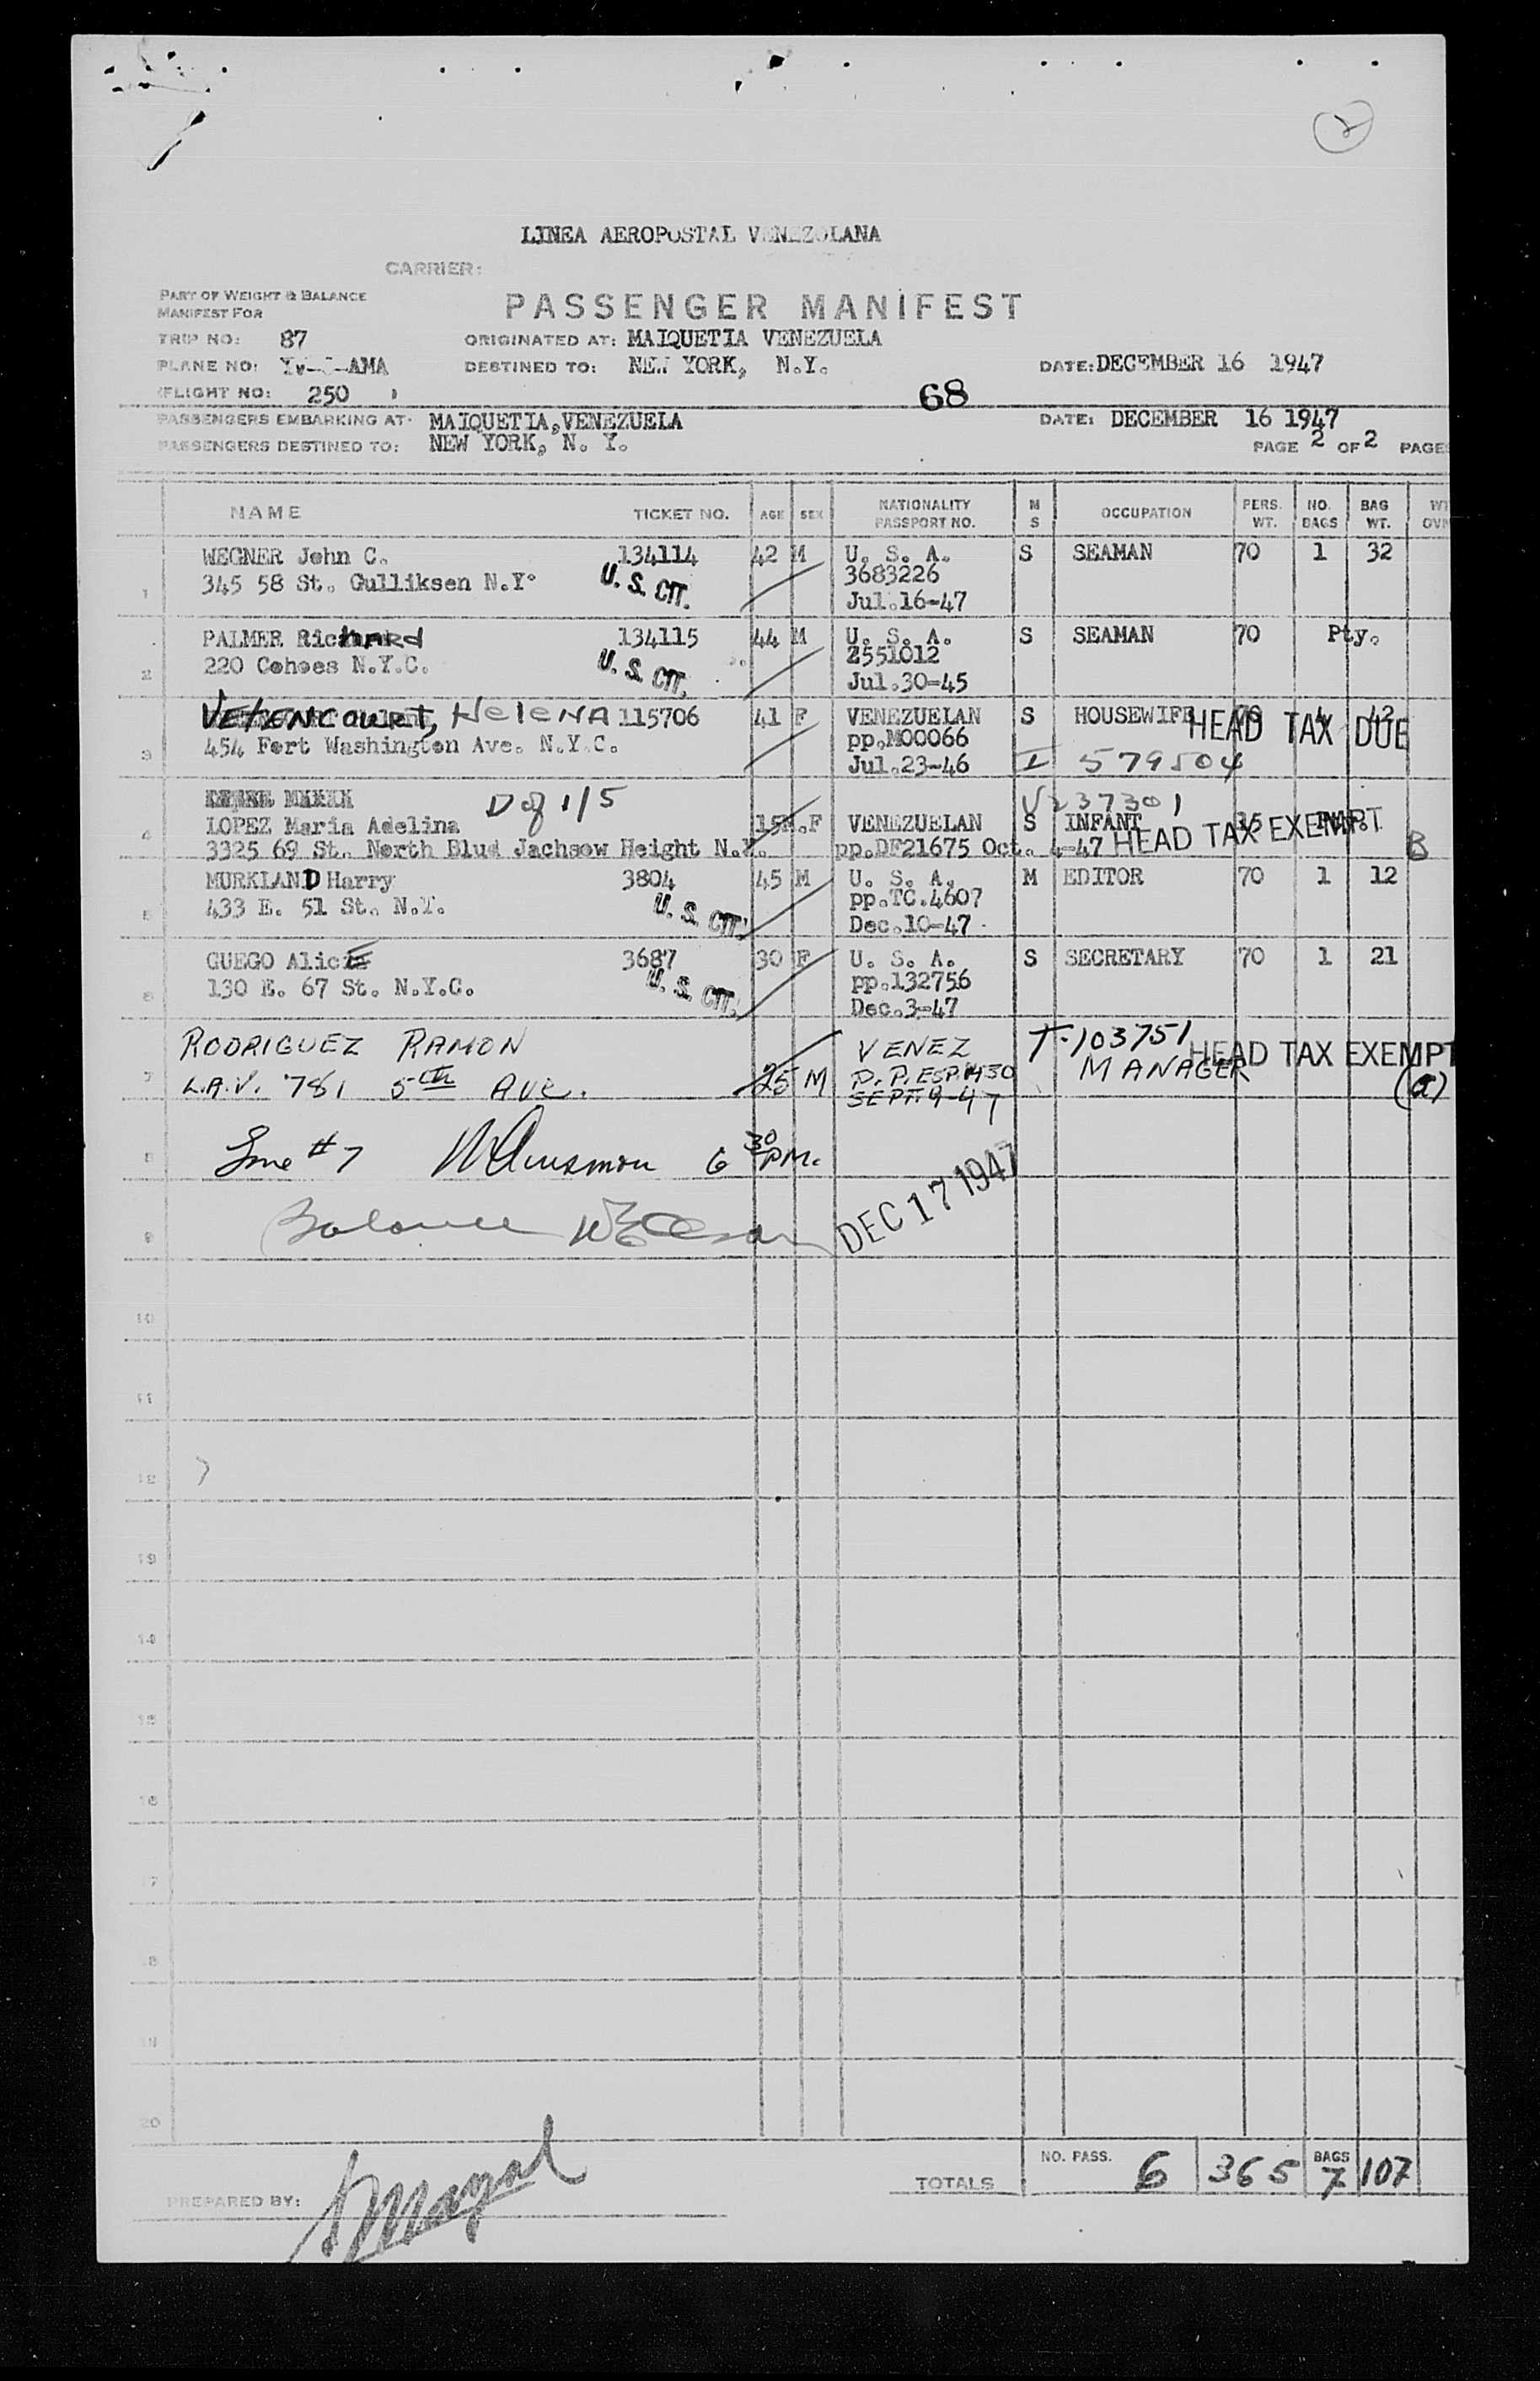 2
LINEA AEROPOSTAL VENEZOLANA
CARRIER:
PART OF WEIGHT & BALANCE
MANIFEST FOR
PASSENGER MANIFEST
TRIP NO: 87 ORIGINATED AT: MAIQUETIA VENEZUELA
PLANE NO: AMA DESTINED TO: NEW YORK, N.Y. DATE: DECEMBER 16 1947
(FLIGHT NO: 250 ) 68
PASSENGERS EMBARKING AT: MAIQUETIA, VENEZUELA DATE: DECEMBER 16 1947
PASSENGERS DESTINED TO: NEW YORK, N. Y. PAGE 2 OF 2 PAGES
NAME TICKET NO. AGE SEX NATIONALITY PASSPORT NO. M S OCCUPATION PERS. WT. NO. BAGS BAG WT.
WEGNER John C. 134114 42 M U. S. A. S SEAMAN 70 1 32
345 58 St. Gulliksen N.Y. U. S. CIT. 3683226
1 Jul.16-47
PALMER Richard 134115 44 M U. S. A. S SEAMAN 70 Pty.
220 Cohoes N.Y.C. U. S. CIT. Z551012
2 Jul.30-45
VETENCOURT, HeleNA 115706 41 F VENEZUELAN S HOUSEWIFE HEAD TAX DUE 70 4 42
454 Fort Washington Ave. N.Y.C. pp.M00066
3 Jul.23-46 I 579504
D of 1/5 V237301
4 LOPEZ Maria Adelina 15M.F VENEZUELAN S INFANT 15 HEAD TAX EXEMPT
3325 69 St. North Blud Jachsow Height N.Y. pp.DF21675 Oct. 4-47 B
MURKLAND Harry 3804 45 M U. S. A. M EDITOR 70 1 12
433 E. 51 St. N.T. U. S. CIT. pp.TC.4607
5 Dec.10-47
GUEGO AliciE 3687 30 F U. S. A. S SECRETARY 70 1 21
130 E. 67 St. N.Y.C. U. S. CIT. pp.132756
6 Dec.3-47
RODRIGUEZ RAMON VENEZ T-103751 HEAD TAX EXEMPT
7 L.A.V. 781 5th AVE. 25 M D.P. ESP. 1430 MANAGER (a)
SEPT. 9-47
8 Line #7 6 30 PM.
9 Balance DEC 17 1947
10
11
12
13
14
15
16
17
18
19
20
TOTALS NO. PASS. 6 365 BAGS 7 107
PREPARED BY: